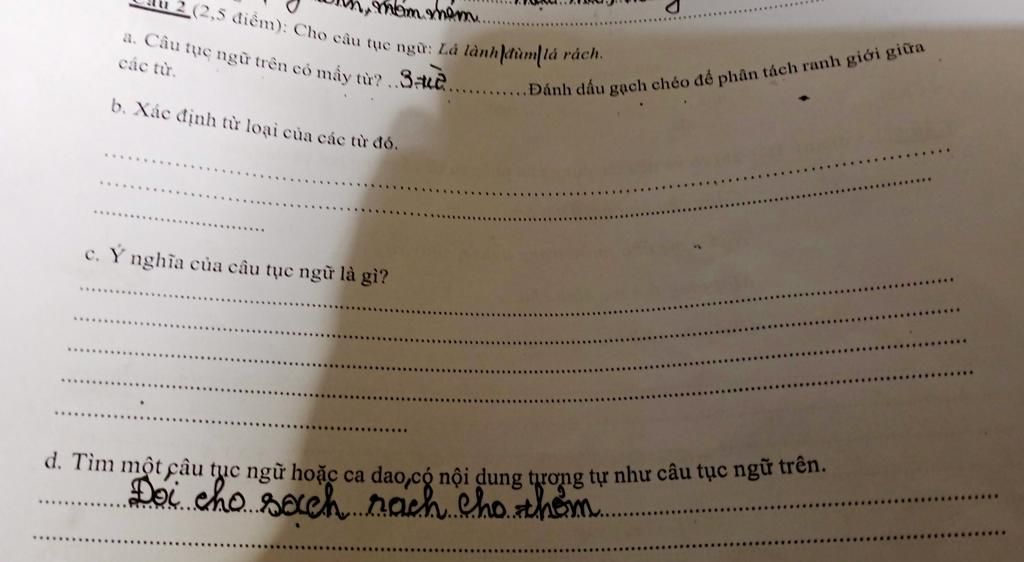 mềm mềm
Câu 2 (2,5 điểm): Cho câu tục ngữ: Lá lành|đùm|lá rách.
a. Câu tục ngữ trên có mấy từ? ..3 từ..............Đánh dấu gạch chéo để phân tách ranh giới giữa
các từ.
b. Xác định từ loại của các từ đó.
c. Ý nghĩa của câu tục ngữ là gì?
d. Tìm một câu tục ngữ hoặc ca dao,có nội dung tương tự như câu tục ngữ trên.
Đói cho sạch rach cho thơm